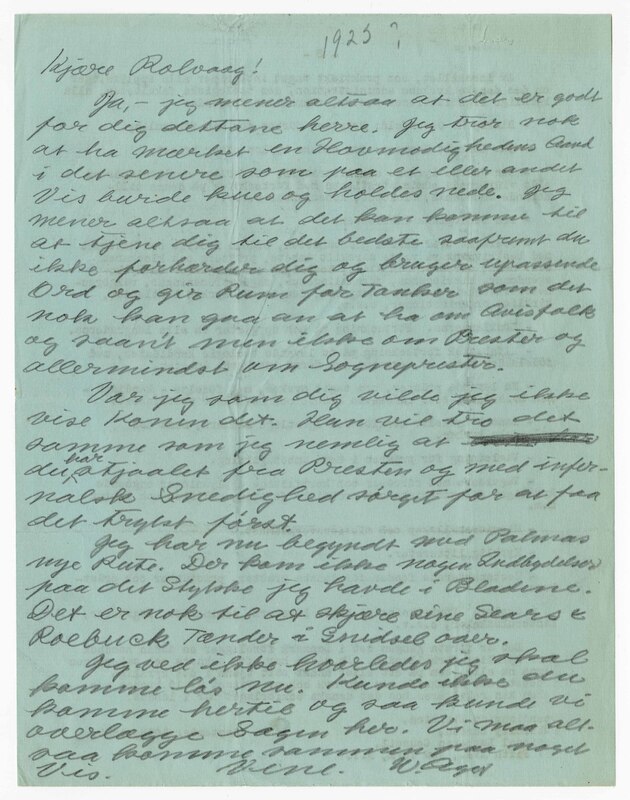 1925?
Kjære Rolvaag!
Ja, - jeg mener altsaa at det er godt
for dig dettane herre. Jeg tror nok
at ha mærket en Hovmodighedens Aand
i det senere som paa et eller andet
Vis burde kues og holdes nede. Jeg
mener altsaa at det kan komme til
at tjene dig til det bedste saafremt du
ikke forhærder dig og bruger upassende
Ord og gir Rum for Tanker som det
nok kan gaa an at ha om Avisfolk
og saan't men ikke om Prester og
allermindst om Sogneprester.
Var jeg som dig vilde jeg ikke
vise Konen det. Hun vil tro det
samme som jeg nemlig at
du har stjaalet fra Presten og med infer-
nalsk Snedighed sørget for at faa
det trykt først.
Jeg har nu begyndt med Palmas
nye Rute. Der kom ikke nogen Indbydelser
paa det Stykke jeg havde i Bladene.
Det er nok til at skjære sine Sears &
Roebuck Tænder i Snidsel over.
Jeg ved ikke hvorledes jeg skal
komme løs nu. Kunde ikke du
komme hertil og saa kunde vi
overlægge Sagen her. Vi maa alt-
saa komme sammen paa noget
Vis. W. Ager